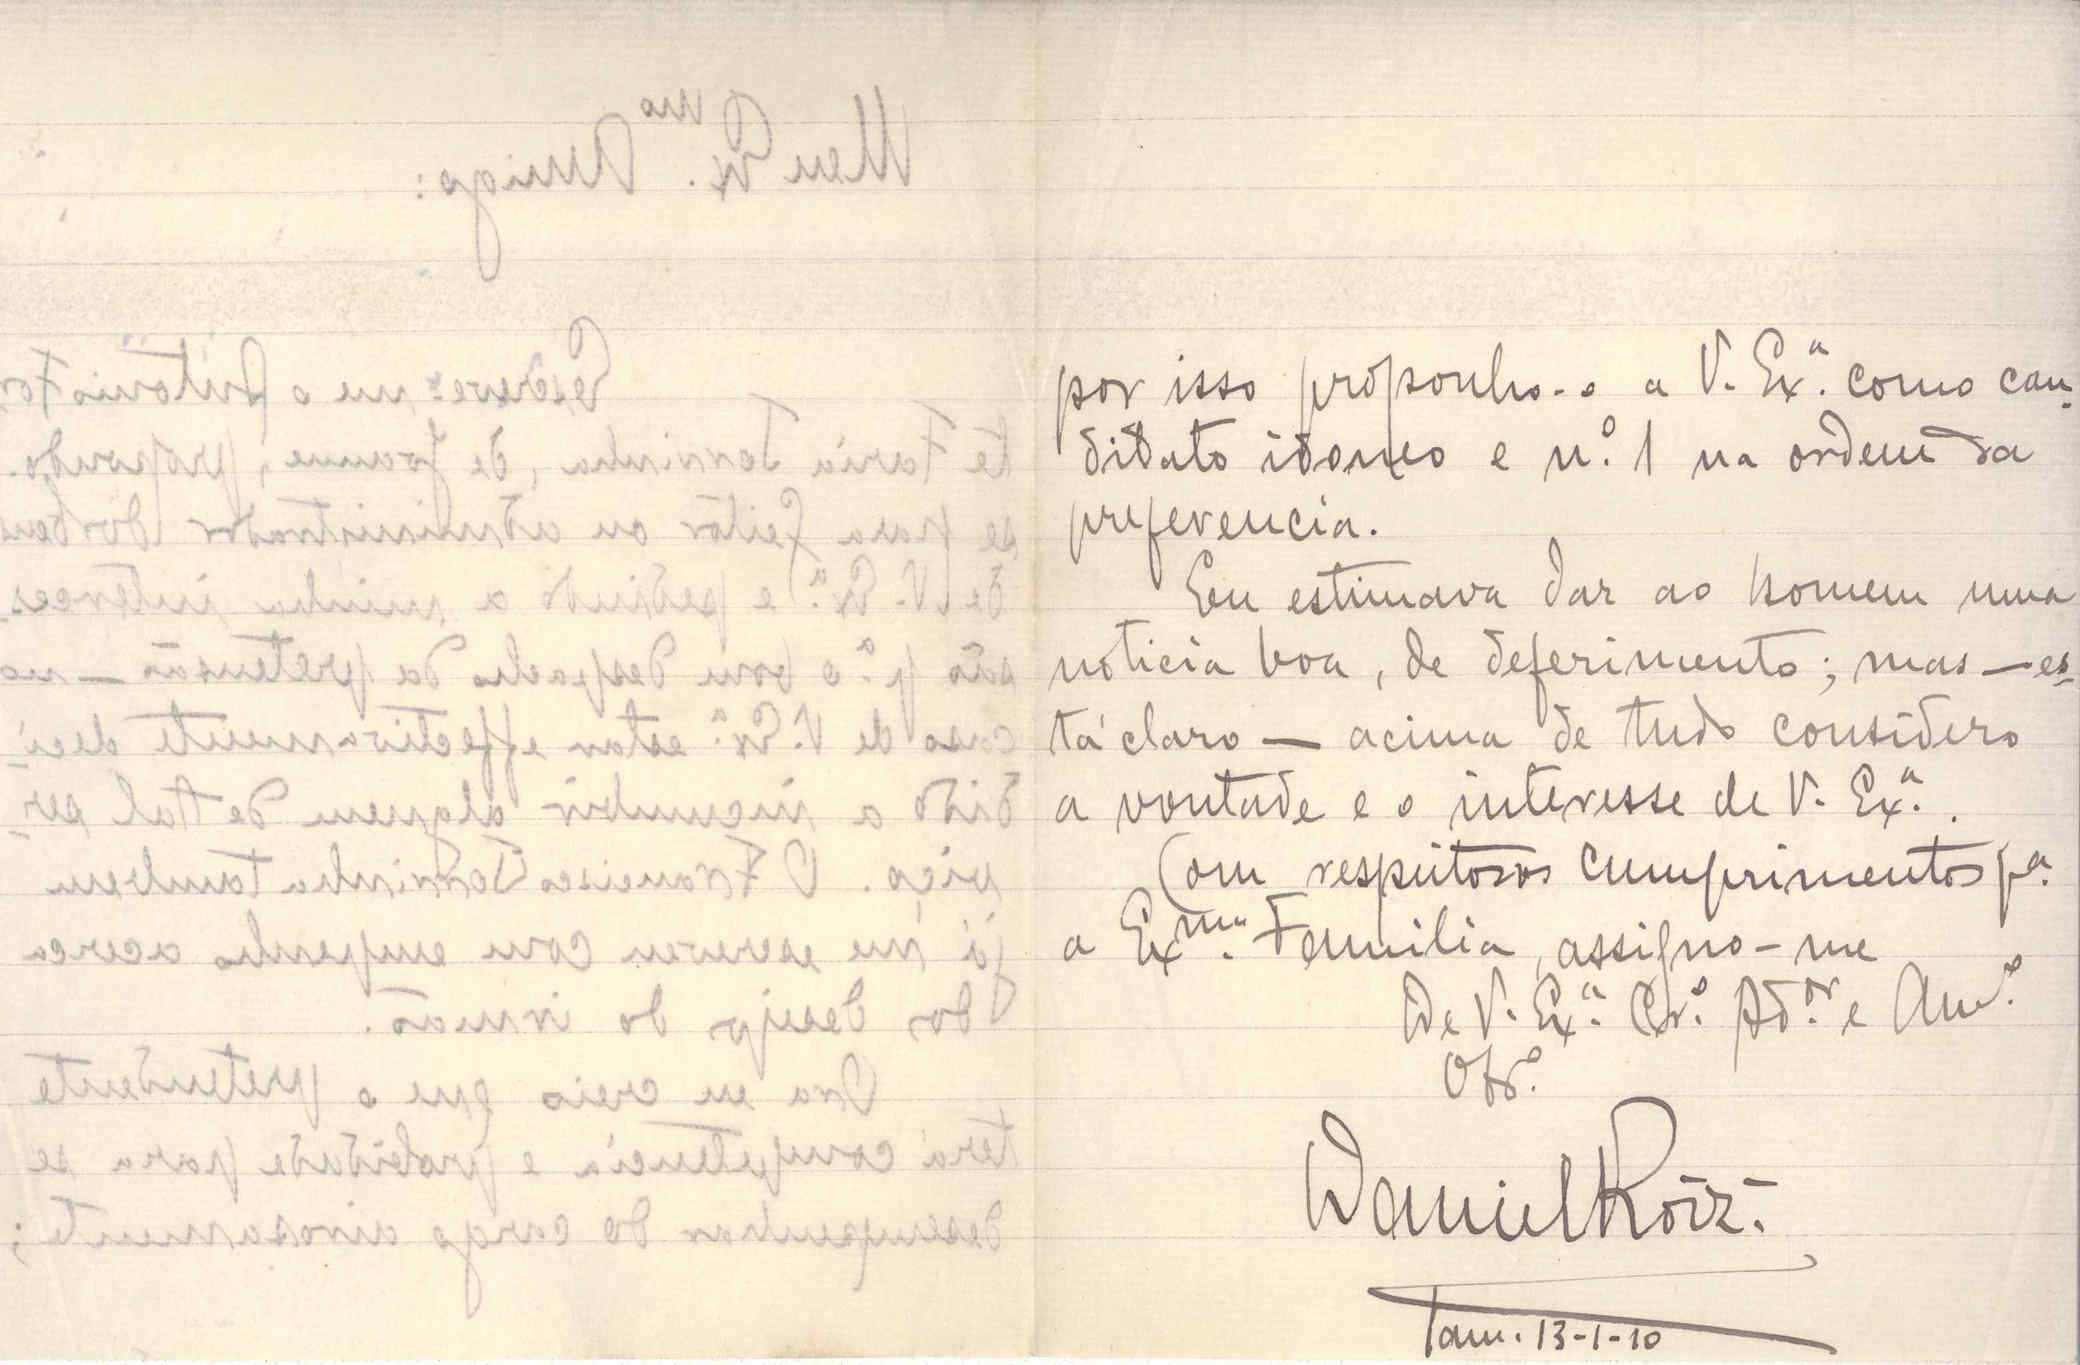 Meu Ex.mo Amigo:
Escreve-me o António For-
te Faria Torrinha, de Joanne, propondo-
se para feitôr ou administrador dos bens
de V. Ex.ª e pedindo a minha interces-
são p.ª o bom despacho da pretensão — no
caso de V. Ex.ª estar effectivamente deci-
dido a incumbir alguem de tal ser-
viço. O Francisco Torrinha tambem
já me escreveu com empenho acerca
dos desejos do irmão.
Ora eu creio que o pretendente
terá competencia e probidade para se
desempenhar do cargo airosamente;
por isso proponho-o a V. Ex.ª como can-
didato idoneo e n.º 1 na ordem da
preferencia.
Eu estimava dar ao homem uma
noticia boa, de deferimento; mas — es-
tá claro — acima de tudo considero
a vontade e o interesse de V. Ex.ª.
Com respeitosos cumprimentos p.ª
a Ex.ma Familia, assigno-me
De V. Ex.ª Cr.º Ad.or e Am.º
Obr.º
Daniel Roiz.
Fam. 13-1-10